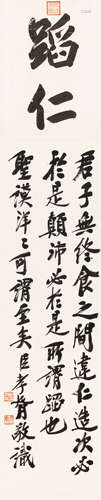 蹈仁
君子無終食之間違仁造次必
於是顛沛必於是所謂蹈也
聖謨洋々可謂至矣臣孝胥敬識